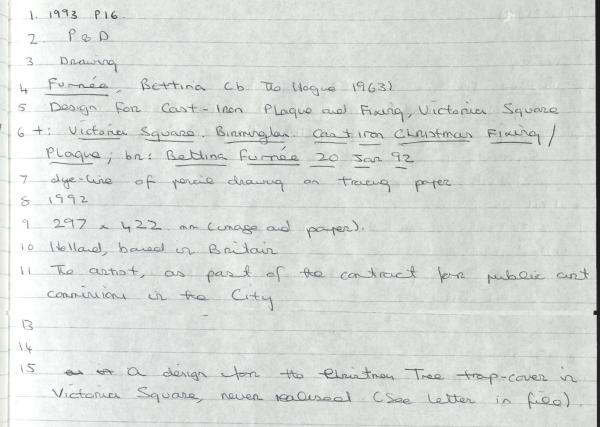 1. 1993 P16.
2 P & D
3 Drawing
4 Furnée, Bettina (b. The Hague 1963)
5 Design for Cast-Iron Plaque and Fixing, Victoria Square
6 t: Victoria Square. Birmingham. Cast iron Christmas Fixing /
Plaque; br: Bettina Furnée 20 Jan 92
7 dye-line of pencil drawing on tracing paper
8 1992
9 297 x 422 mm (image and paper).
10 Holland, based in Britain
11 The artist, as part of the contract for public art
commissions in the City
13
14
15 a design for the Christmas Tree trap-cover in
Victoria Square, never realised (See letter in file)